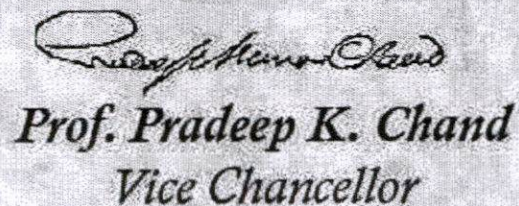 Prof. Pradeep K. Chand
Vice Chancellor